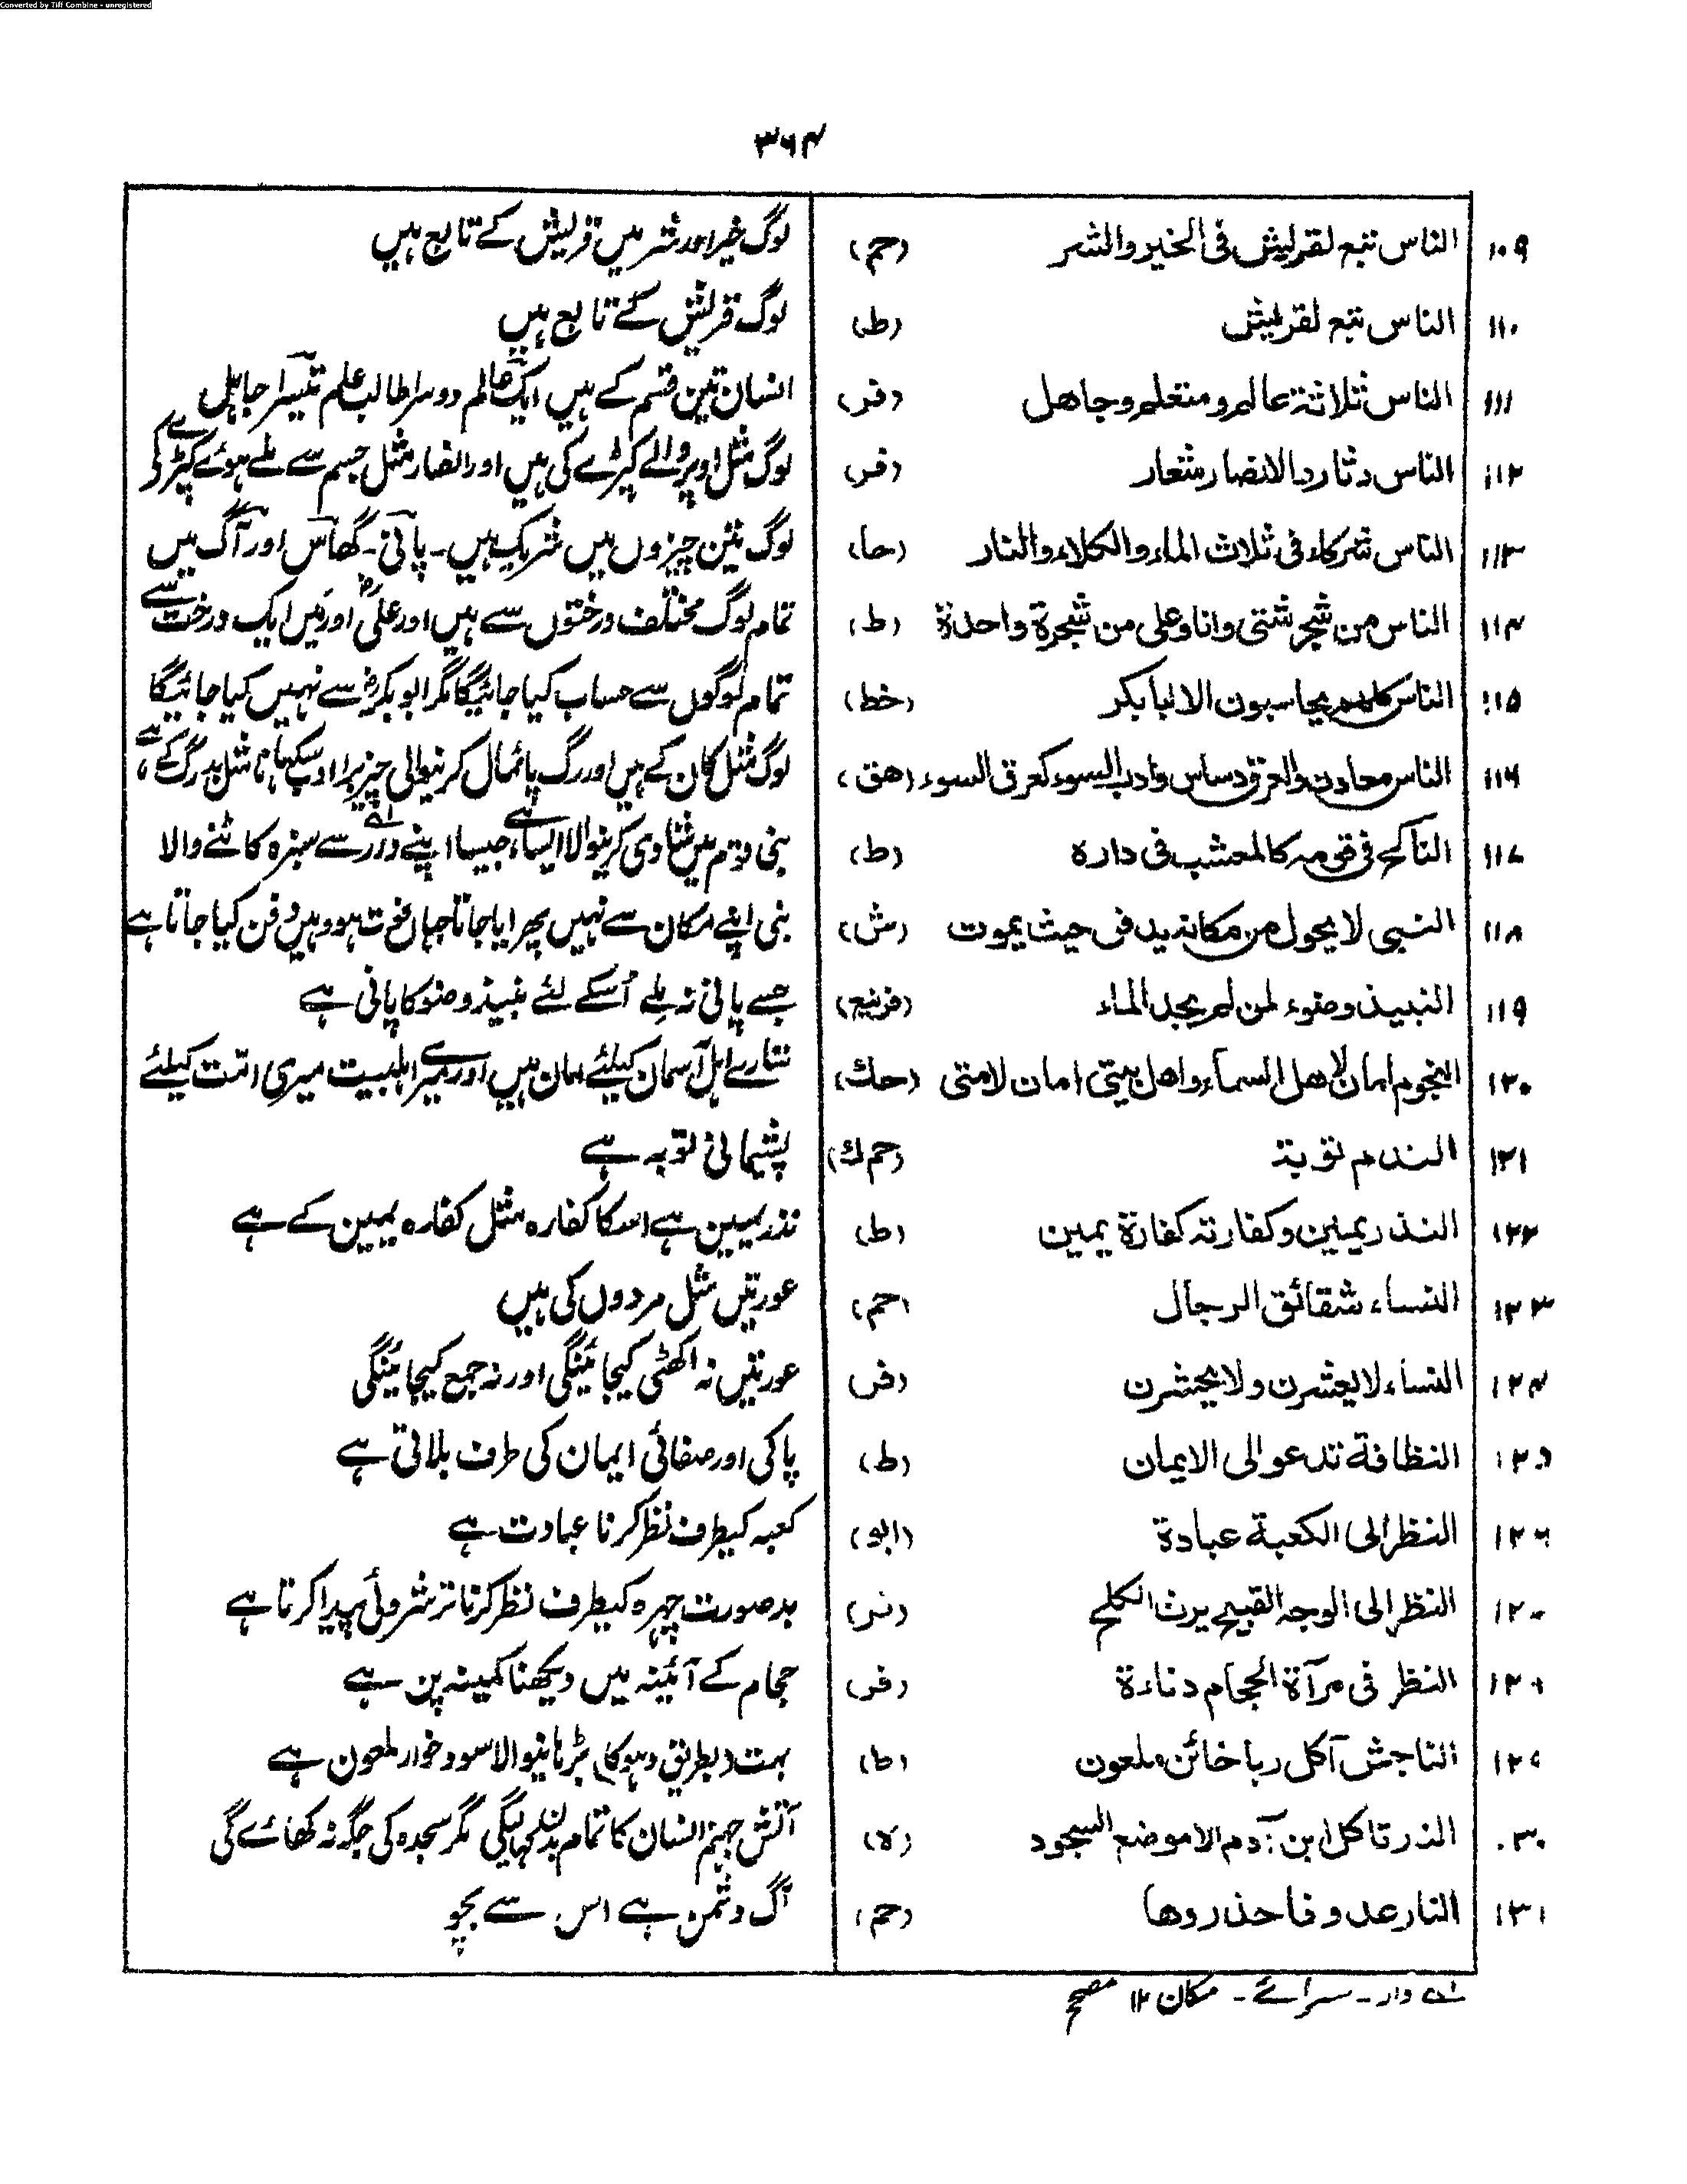 Converted by Tiff Combine - unregistered
۳۶۴
۱۰۹ الناس تبع لقریش فی الخیر والشر (حم) لوگ خیر اور شر میں قریش کے تابع ہیں
۱۱۰ الناس تبع لقریش (ط) لوگ قریش کے تابع ہیں
۱۱۱ الناس ثلاثة عالم ومتعلم وجاهل (فر) انسان تین قسم کے ہیں ایک عالم دوسرا طالب علم تیسرا جاہل
۱۱۲ الناس دثار والانصار شعار (فر) لوگ مثل اوپر والے کپڑے کی ہیں اور انصار مثل جسم سے ملے ہوئے کپڑے کی
۱۱۳ الناس شرکاء فی ثلاث الماء والکلاء والنار (حا) لوگ تین چیزوں میں شریک ہیں - پانی - گھاس اور آگ میں
۱۱۴ الناس من شجر شتی وانا وعلی من شجرة واحدة (ط) تمام لوگ مختلف درختوں سے ہیں اور علیؓ اور میں ایک درخت سے
۱۱۵ الناس کلهم یحاسبون الا ابا بکر (خط) تمام لوگوں سے حساب کیا جائیگا مگر ابو بکرؓ سے نہیں کیا جائیگا
۱۱۶ الناس معادن والعرق دساس وادب السوء کعرق السوء (هق) لوگ مثل کان کے ہیں اور رگ پائمال کرنیوالی چیز برا ادب سکھانا مثل بد رگ کے ہے
۱۱۷ الناکح فی قومه کالمعشب فی داره (ط) بنی قوم میں شادی کرنیوالا ایسا ہے جیسا اپنے دار سے سبزہ کاٹنے والا
۱۱۸ النبی لا یحول من مکانه یدفن حیث یموت (ش) نبی اپنے مکان سے نہیں پھرایا جاتا جہاں فوت ہو وہیں دفن کیا جاتا ہے
۱۱۹ النبیذ وضوء لمن لم یجد الماء جسے پانی نہ ملے اُسکے لئے نبیذ وضو کا پانی ہے
۱۲۰ النجوم امان لاهل السماء واهل بیتی امان لامتی (حك) ستارے اہل آسمان کیلئے امان ہیں اور میرے اہلبیت میری امت کیلئے
۱۲۱ الندم توبة (حم ك) پشیمانی توبہ ہے
۱۲۲ النذر یمین وکفارته کفارة یمین (ط) نذر یمین ہے اسکا کفارہ مثل کفارہ یمین کے ہے
۱۲۳ النساء شقائق الرجال (حم) عورتیں مثل مردوں کی ہیں
۱۲۴ النساء لا یعشرن ولا یحشرن (فر) عورتیں نہ اکھٹی کیجائینگی اور نہ جمع کیجائینگی
۱۲۵ النظافة تدعو الی الایمان (ط) پاکی اور صفائی ایمان کی طرف بلاتی ہے
۱۲۶ النظر الی الکعبة عبادة (ابو) کعبہ کیطرف نظر کرنا عبادت ہے
۱۲۷ النظر الی الوجه القبیح یرث الکلح (فر) بدصورت چہرہ کیطرف نظر کرنا ترشروئی پیدا کرتا ہے
النظر فی مرآة الحجام دناءة (فر) حجام کے آئینہ میں دیکھنا کمینہ پن ہے
الناجش آکل ربا خائن ملعون (ط) بہت (بطریق دہوکا) بڑہانیوالا سود خوار ملعون ہے
النار تاکل ابن آدم الا موضع السجود (ہ) آتش جہنم انسان کا تمام بدن کہالیگی مگر سجدہ کی جگہ نہ کھائے گی
۱۳۱ النار عدو فاحذروها (حم) آگ دشمن ہے اس سے بچو
لہ دار - سرائے - مکان ۱۲ مصحح